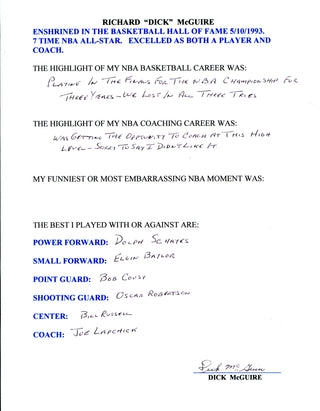 RICHARD “DICK” McGUIRE
ENSHRINED IN THE BASKETBALL HALL OF FAME 5/10/1993.
7 TIME NBA ALL-STAR. EXCELLED AS BOTH A PLAYER AND
COACH.
THE HIGHLIGHT OF MY NBA BASKETBALL CAREER WAS:
PLAYING IN THE FINALS FOR THE NBA CHAMPIONSHIP FOR
THREE YEARS – WE LOST IN ALL THREE TRIES
THE HIGHLIGHT OF MY NBA COACHING CAREER WAS:
WAS GETTING THE OPPORTUNITY TO COACH AT THIS HIGH
LEVEL – SORRY TO SAY I DIDN'T LIKE IT
MY FUNNIEST OR MOST EMBARRASSING NBA MOMENT WAS:
THE BEST I PLAYED WITH OR AGAINST ARE:
POWER FORWARD: DOLPH SCHAYES
SMALL FORWARD: ELGIN BAYLOR
POINT GUARD: BOB COUSY
SHOOTING GUARD: OSCAR ROBERTSON
CENTER: BILL RUSSELL
COACH: JOE LAPCHICK
Dick McGuire
DICK McGUIRE